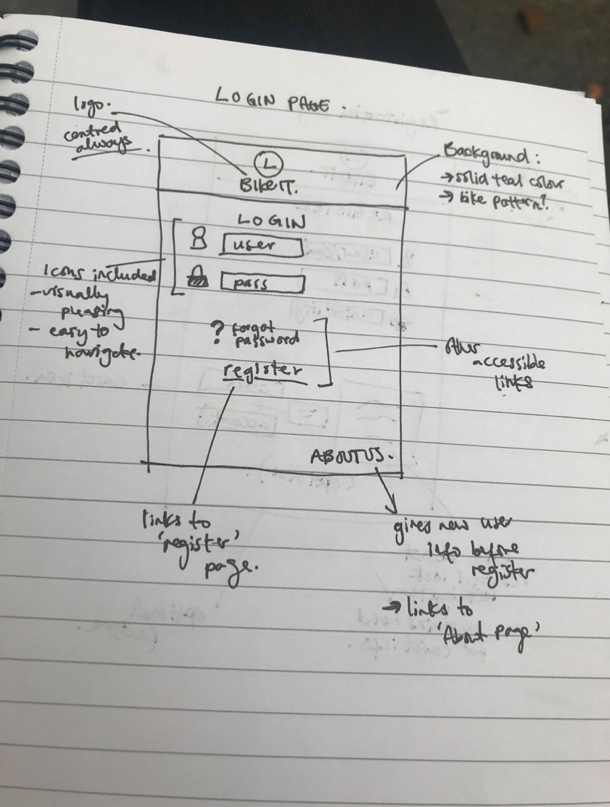 LOGIN PAGE.
logo.
centred
always.
L
BIKEIT.
Background:
→ solid teal colour
→ bike pattern?
LOGIN
user
pass
Icons included
- visually
pleasing
- easy to
navigate.
? forgot
password
register
other
accessible
links
ABOUT US.
links to
'register'
page.
gives new user
info before
register
→ links to
'About page'